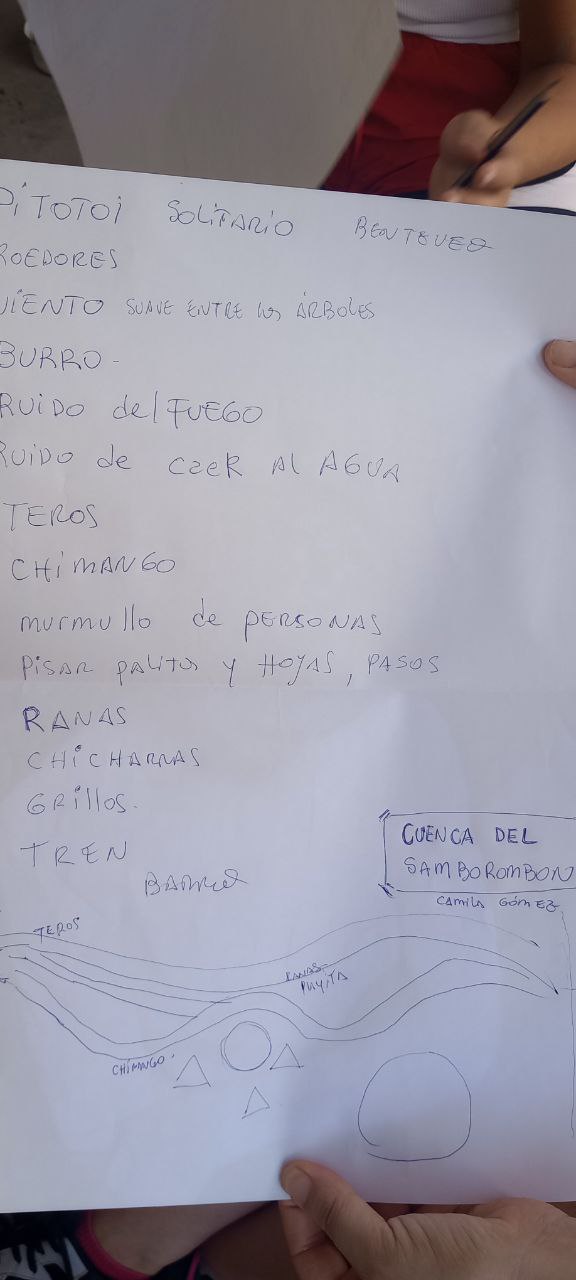 PITOTOI SOLITARIO BENTEVEO
ROEDORES
VIENTO SUAVE ENTRE los ÁRBOLES
BURRO -
RUIDO del FUEGO
RUIDO de CaeR Al AGUA
TEROS
CHIMANGO
murmullo de PERSONAS
PISAR PALITOS y HOJAS, PASOS
RANAS
CHICHARRAS
GRillos.
TREN
CUENCA DEL
SAMBOROMBON
CAMILA GÓMEZ
TEROS
RANAS
PLAYITA
CHIMANGO.